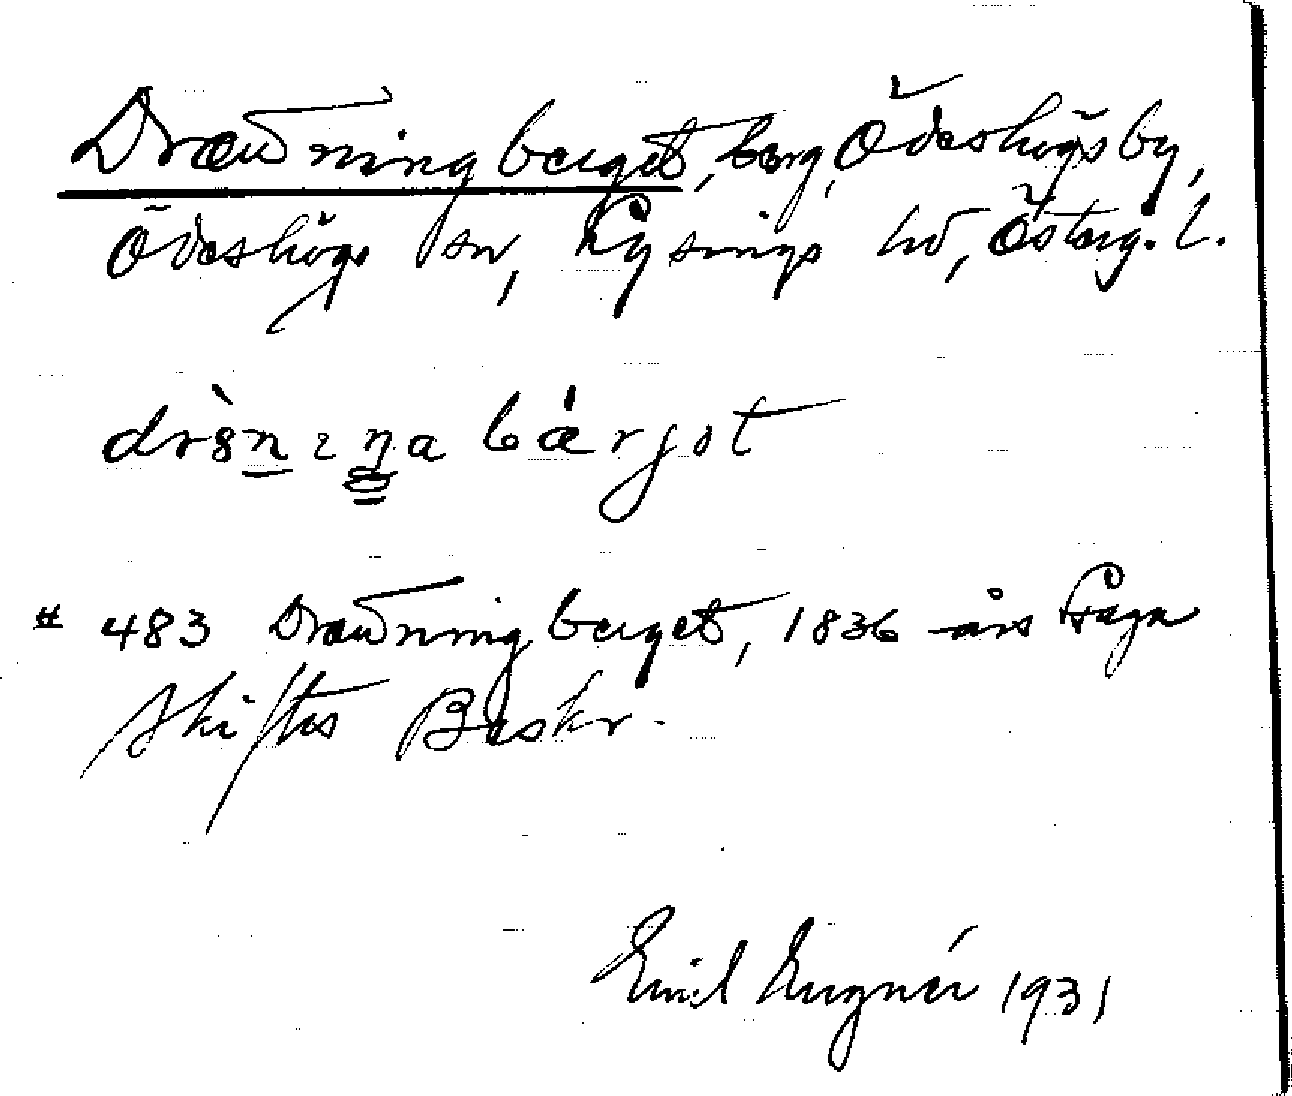 Drottningberget, berg, Ödeshögs by,
Ödeshögs sn, Lysings hd, Österg. l.
bärjət
# 483 Drottningberget, 1836 års Laga
Skiftes Beskr.
Emil Lugnér 1931